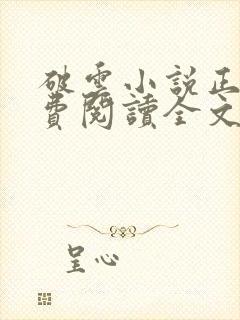 破雲小說正
費閱讀全文
呈心